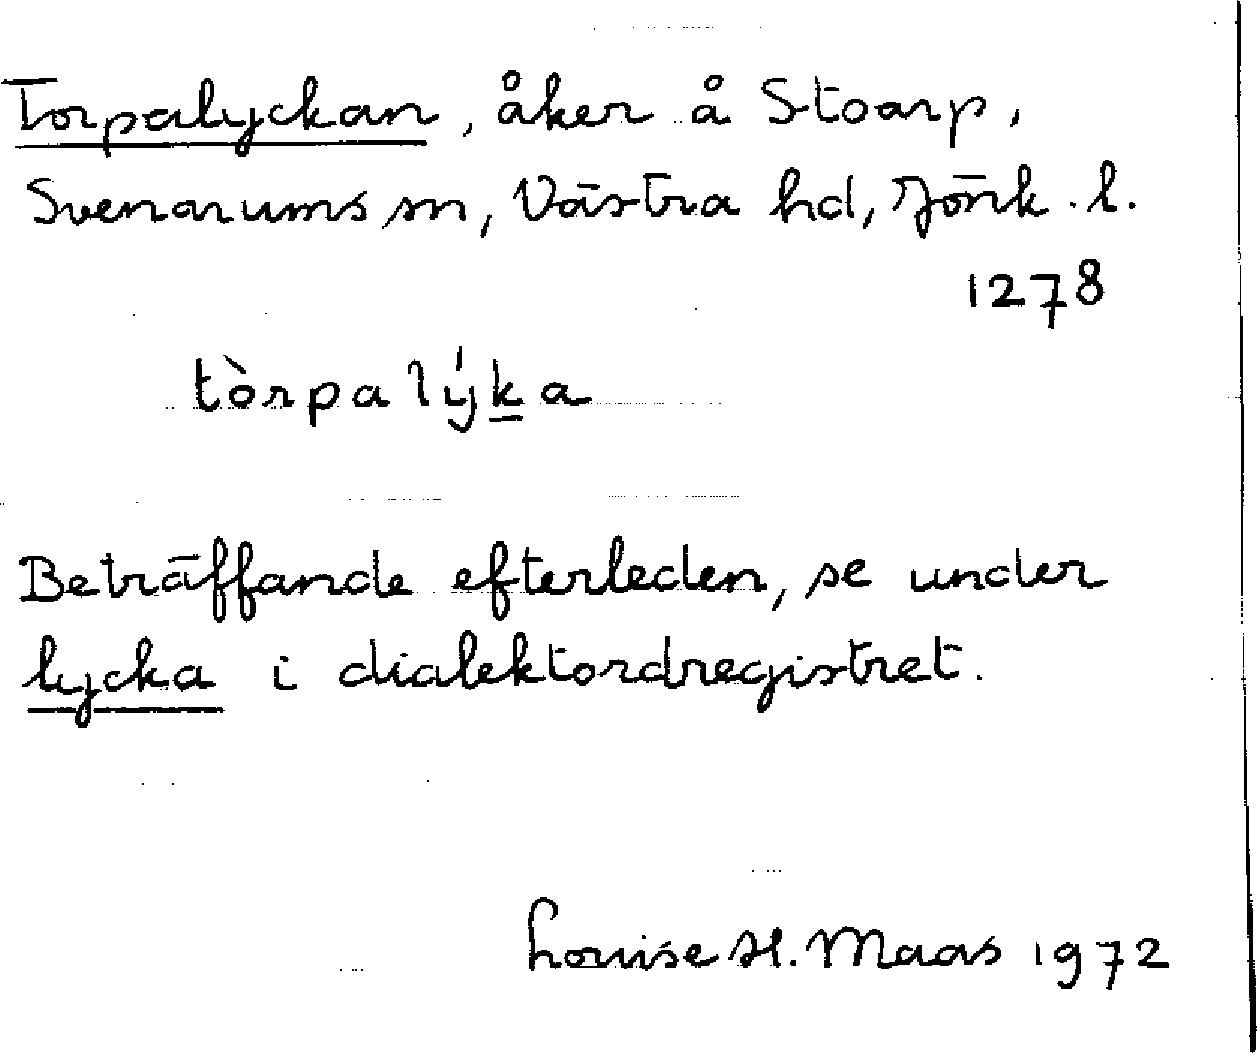 Torpalyckan, åker å Stoarp,
Svenarums sn, Västra hd, Jönk. l.
1278
tòrpalýka
Beträffande efterleden, se under
lycka i dialektordregistret.
Louise H. Maas 1972